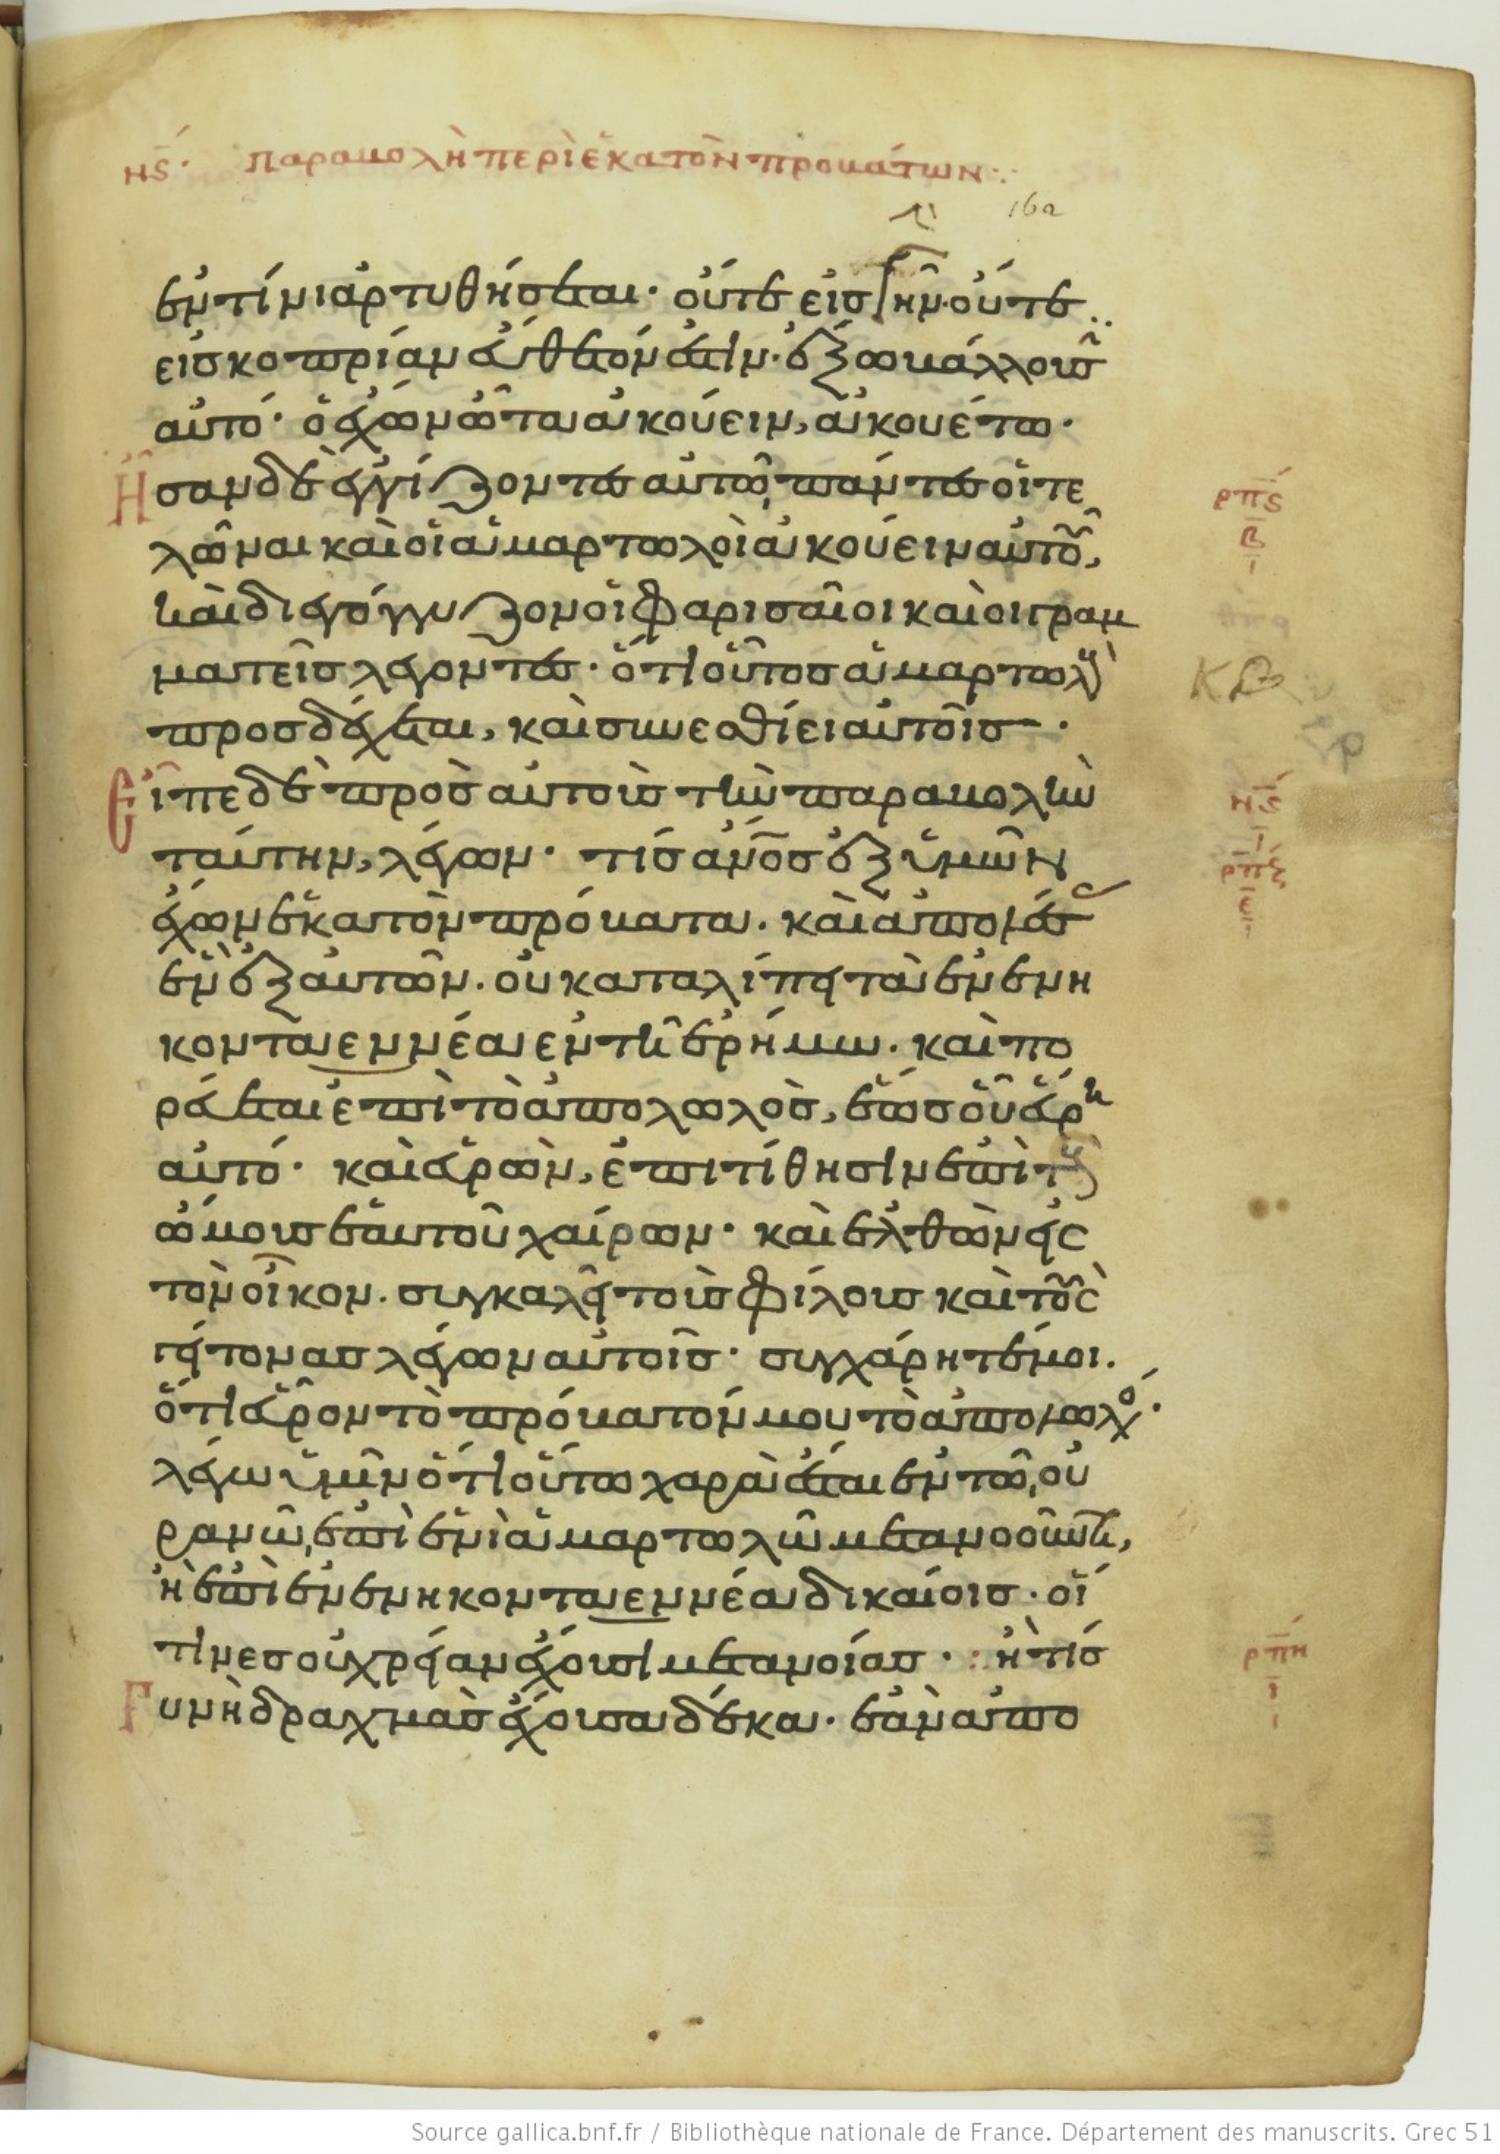 νϛ· παραβολὴ περὶ ἑκατὸν προβάτων:
162
ἐν τίνι ἀρτυθήσεται· οὔτε εἰς γῆν· οὔτε
εἰς κοπρίαν εὔθετόν ἐστιν· ἔξω βάλλουσιν
αὐτό· ὁ ἔχων ὦτα ἀκούειν, ἀκουέτω·
Ἦσαν δὲ ἐγγίζοντες αὐτῷ, πάντες οἱ τε
λῶναι καὶ οἱ ἁμαρτωλοὶ ἀκούειν αὐτοῦ,
καὶ διεγόγγυζον οἱ φαρισαῖοι καὶ οἱ γραμ
ματεῖς λέγοντες· ὅτι οὗτος ἁμαρτωλοὺς
προσδέχεται, καὶ συνεσθίει αὐτοῖς·
Εἶπε δὲ πρὸς αὐτοὺς τὴν παραβολὴν
ταύτην, λέγων· τίς ἄνος ἐξ ὑμῶν
ἔχων ἑκατὸν πρόβατα· καὶ ἀπολέσας
ἓν ἐξ αὐτῶν· οὐ καταλίπει τὰ ἐνενη
κονταεννέα ἐν τῇ ἐρήμω· καὶ πο
ρεύεται ἐπὶ τὸ ἀπολωλὸς, ἕως οὗ εὕρῃ
αὐτό· καὶ εὑρὼν, ἐπιτίθησιν ἐπὶ τοὺς
ὤμους ἑαυτοῦ χαίρων· καὶ ἐλθὼν εἰς
τὸν οἶκον· συγκαλεῖ τοὺς φίλους καὶ τοὺς
γείτονας λέγων αὐτοῖς· συγχάρητέ μοι·
ὅτι εὗρον τὸ πρόβατόν μου τὸ ἀπολωλός·
λέγω ὑμῖν ὅτι οὕτω χαρὰ ἔσται ἐν τῶ οὐ
ρανῶ, ἐπὶ ἑνὶ ἁμαρτωλῶ μετανοοῦντι,
ἢ ἐπὶ ἐνενηκονταεννέα δικαίοις· οἵ
τινες οὐ χρείαν ἔχουσι μετανοίας· ἢ τίς
Γυνὴ δραχμὰς ἔχουσα δέκα· ἐὰν ἀπο
ρπϛ
β
νϛ
ρπζ
ε
ρπη
ι
Source gallica.bnf.fr / Bibliothèque nationale de France. Département des manuscrits. Grec 51